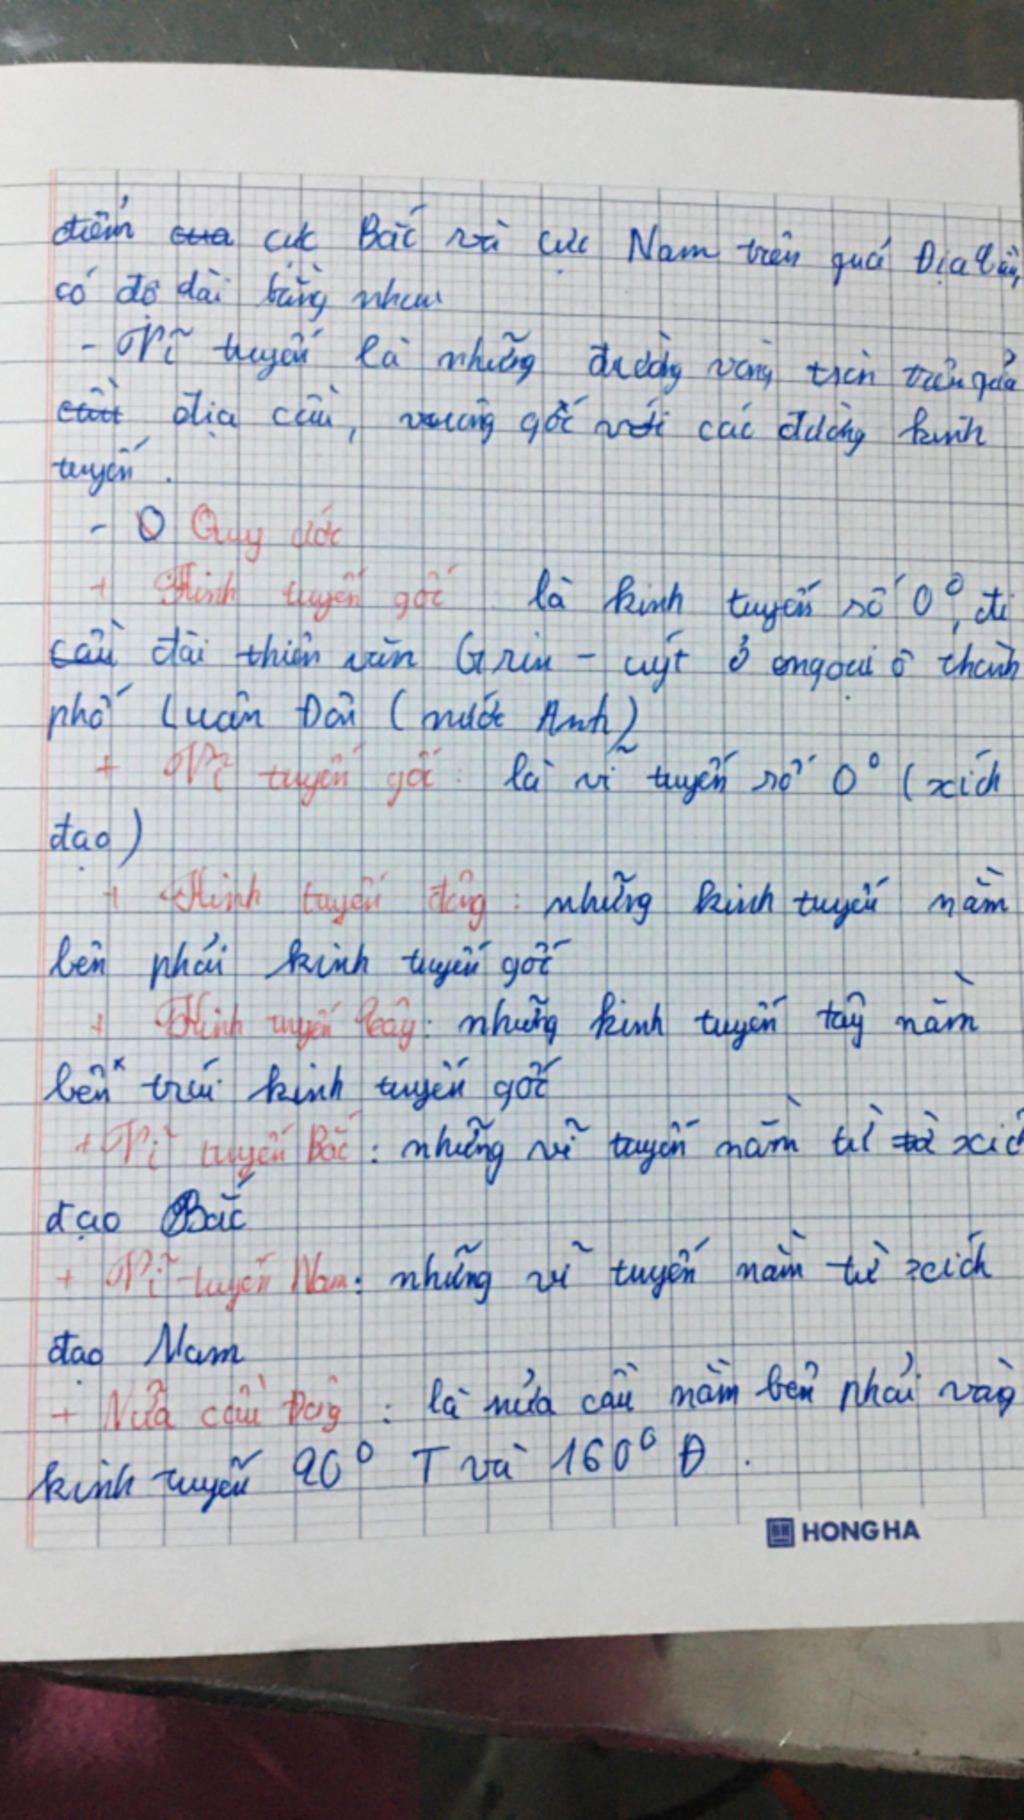 điểm cua cực Bắc và cực Nam trên quả Địa Cầu,
có độ dài bằng nhau
- Vĩ tuyến là những đường vòng tròn trên quả
cầu địa cầu, vuông góc với các đường kinh
tuyến.
- Quy ước
+ Kinh tuyến gốc: là kinh tuyến số 0°, đi
cầu đài thiên văn Grin-uýt ở ngoại ô thành
phố Luân Đôn (nước Anh)
+ Vĩ tuyến gốc: là vĩ tuyến số 0° (xích
đạo)
+ Kinh tuyến đông: những kinh tuyến nằm
bên phải kinh tuyến gốc
+ Kinh tuyến tây: những kinh tuyến tây nằm
bên trái kinh tuyến gốc
+ Vĩ tuyến Bắc: những vĩ tuyến nằm từ xích
đạo Bắc
+ Vĩ tuyến Nam: những vĩ tuyến nằm từ xích
đạo Nam
+ Nửa cầu Đông: là nửa cầu nằm bên phải vòng
kinh tuyến 20° T và 160° Đ.
HONG HA